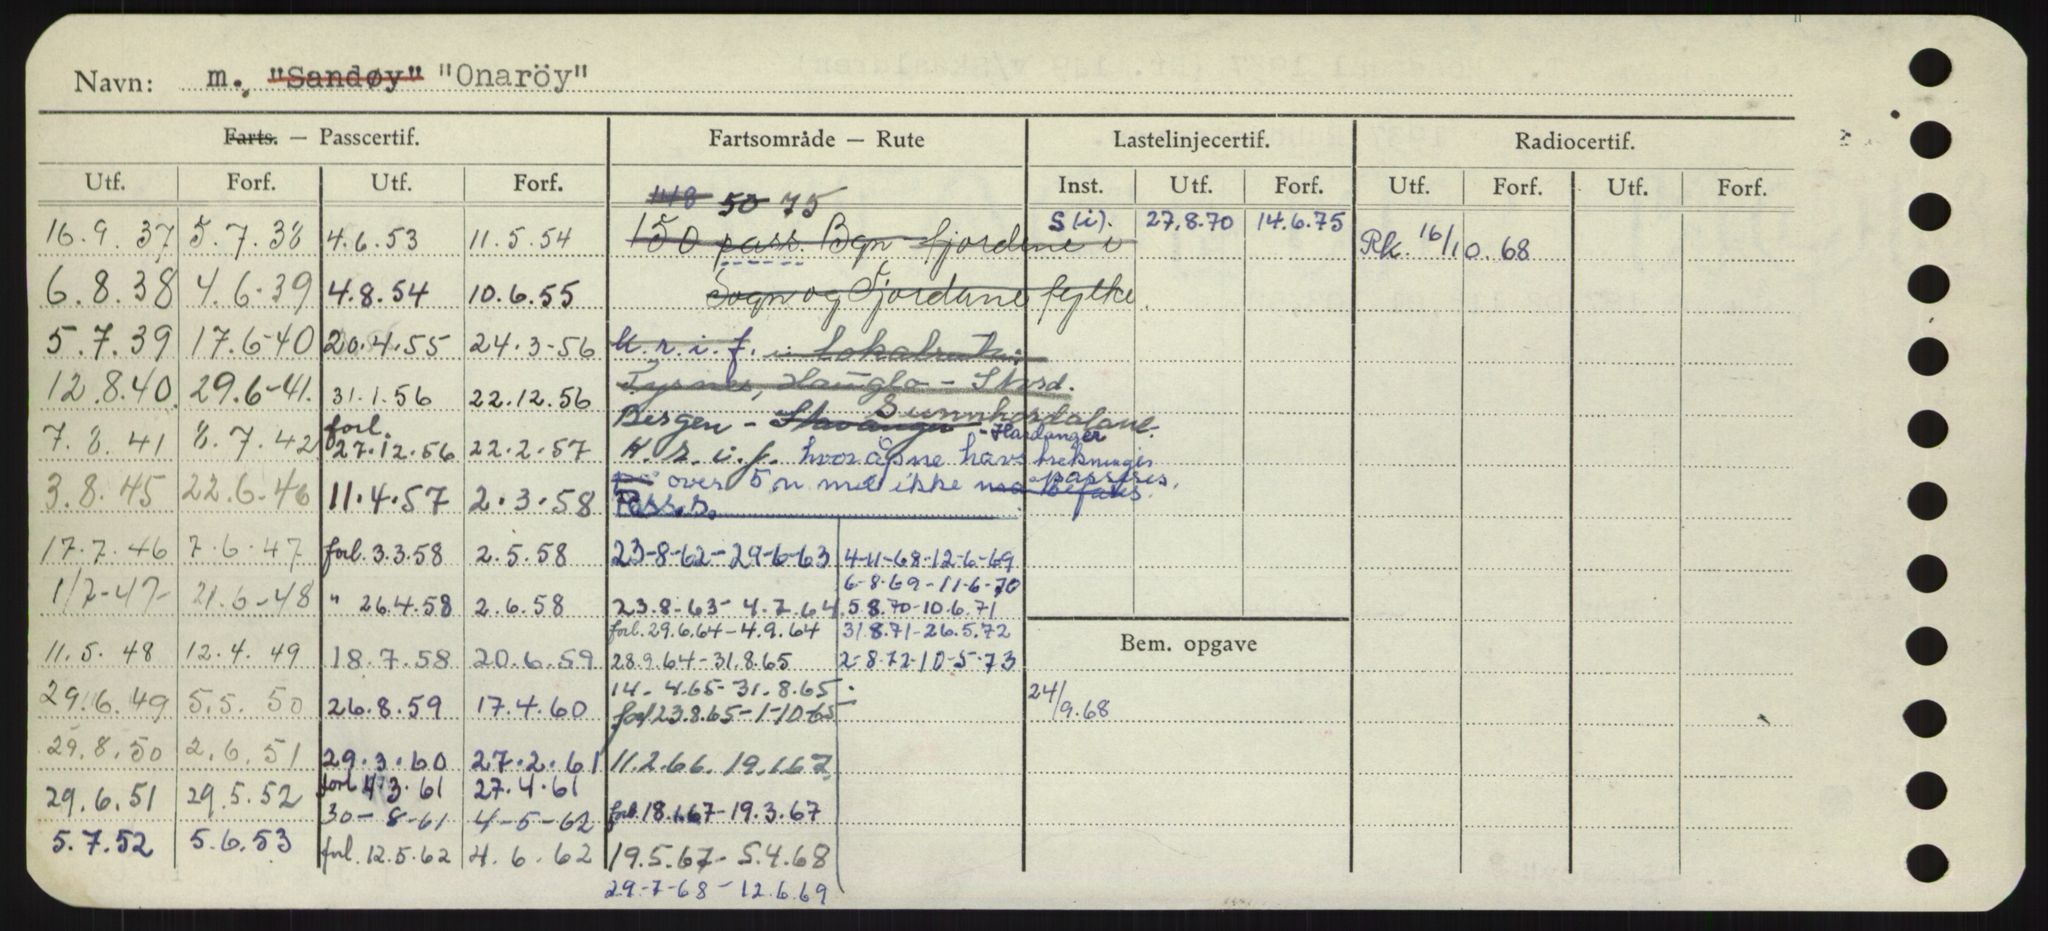 Navn: m. "Sandøy" "Onaröy"
Farts. — Passcertif. Fartsområde — Rute Lastelinjecertif. Radiocertif.
Utf. Forf. Utf. Forf. Inst. Utf. Forf. Utf. Forf. Utf. Forf.
148 50 75
16.9.37 5.7.38 4.6.53 11.5.54 150 pass. Bgn - fjordene i S(i). 27.8.70 14.6.75 Rk. 16/10.68
6.8.38 4.6.39 4.8.54 10.6.55 Sogn og Fjordane fylke.
5.7.39 17.6-40 20.4.55 24.3-56 K.r.i.f. i Lokalruten:
12.8.40. 29.6-41. 31.1.56 22.12.56 Tysnes, Haugla - Stord.
7.8.41 8.7.42 forl. 27.12.56 22.2.57 Bergen - Stavanger Sunnhordaland.
- Hardanger
K.r.i.f. hvor åpne havstrekninger
3.8.45 22.6.46 11.4.57 2.3.58 over 5 n mil ikke må befares passeres.
Pass.s.
17.7.46 7.6.47 forl. 3.3.58 2.5.58 23-8-62-29-6-63 4-11-68-12-6-69
6-8-69-11-6-70
1/7-47- 21.6-48 " 26.4.58 2.6.58 23.8-63- 4.7.64 5.8.70-10.6.71
forl. 29.6.64-4.9.64 31.8.71-26.5.72
Bem. opgave
11.5.48 12.4.49 18.7.58 20.6.59 28.9.64-31.8.65 2-8-72-10-5-73
14.4.65-31.8.65
29.6.49 5.5.50 26.8.59 17.4.60 forl 23.8.65-1-10-65 24/9.68
29.8.50 2.6.51 29.3.60 27.2.61 11.2.66. 19.1.67
29.6.51 29.5.52 forl 1/3.61 27.4.61
30-8-61 4-5-62 forl. 18.1.67-19.3.67
5.7.52 5.6.53 forl. 12.5.62 4.6.62 19.5.67- 5.4.68
29-7-68-12.6.69